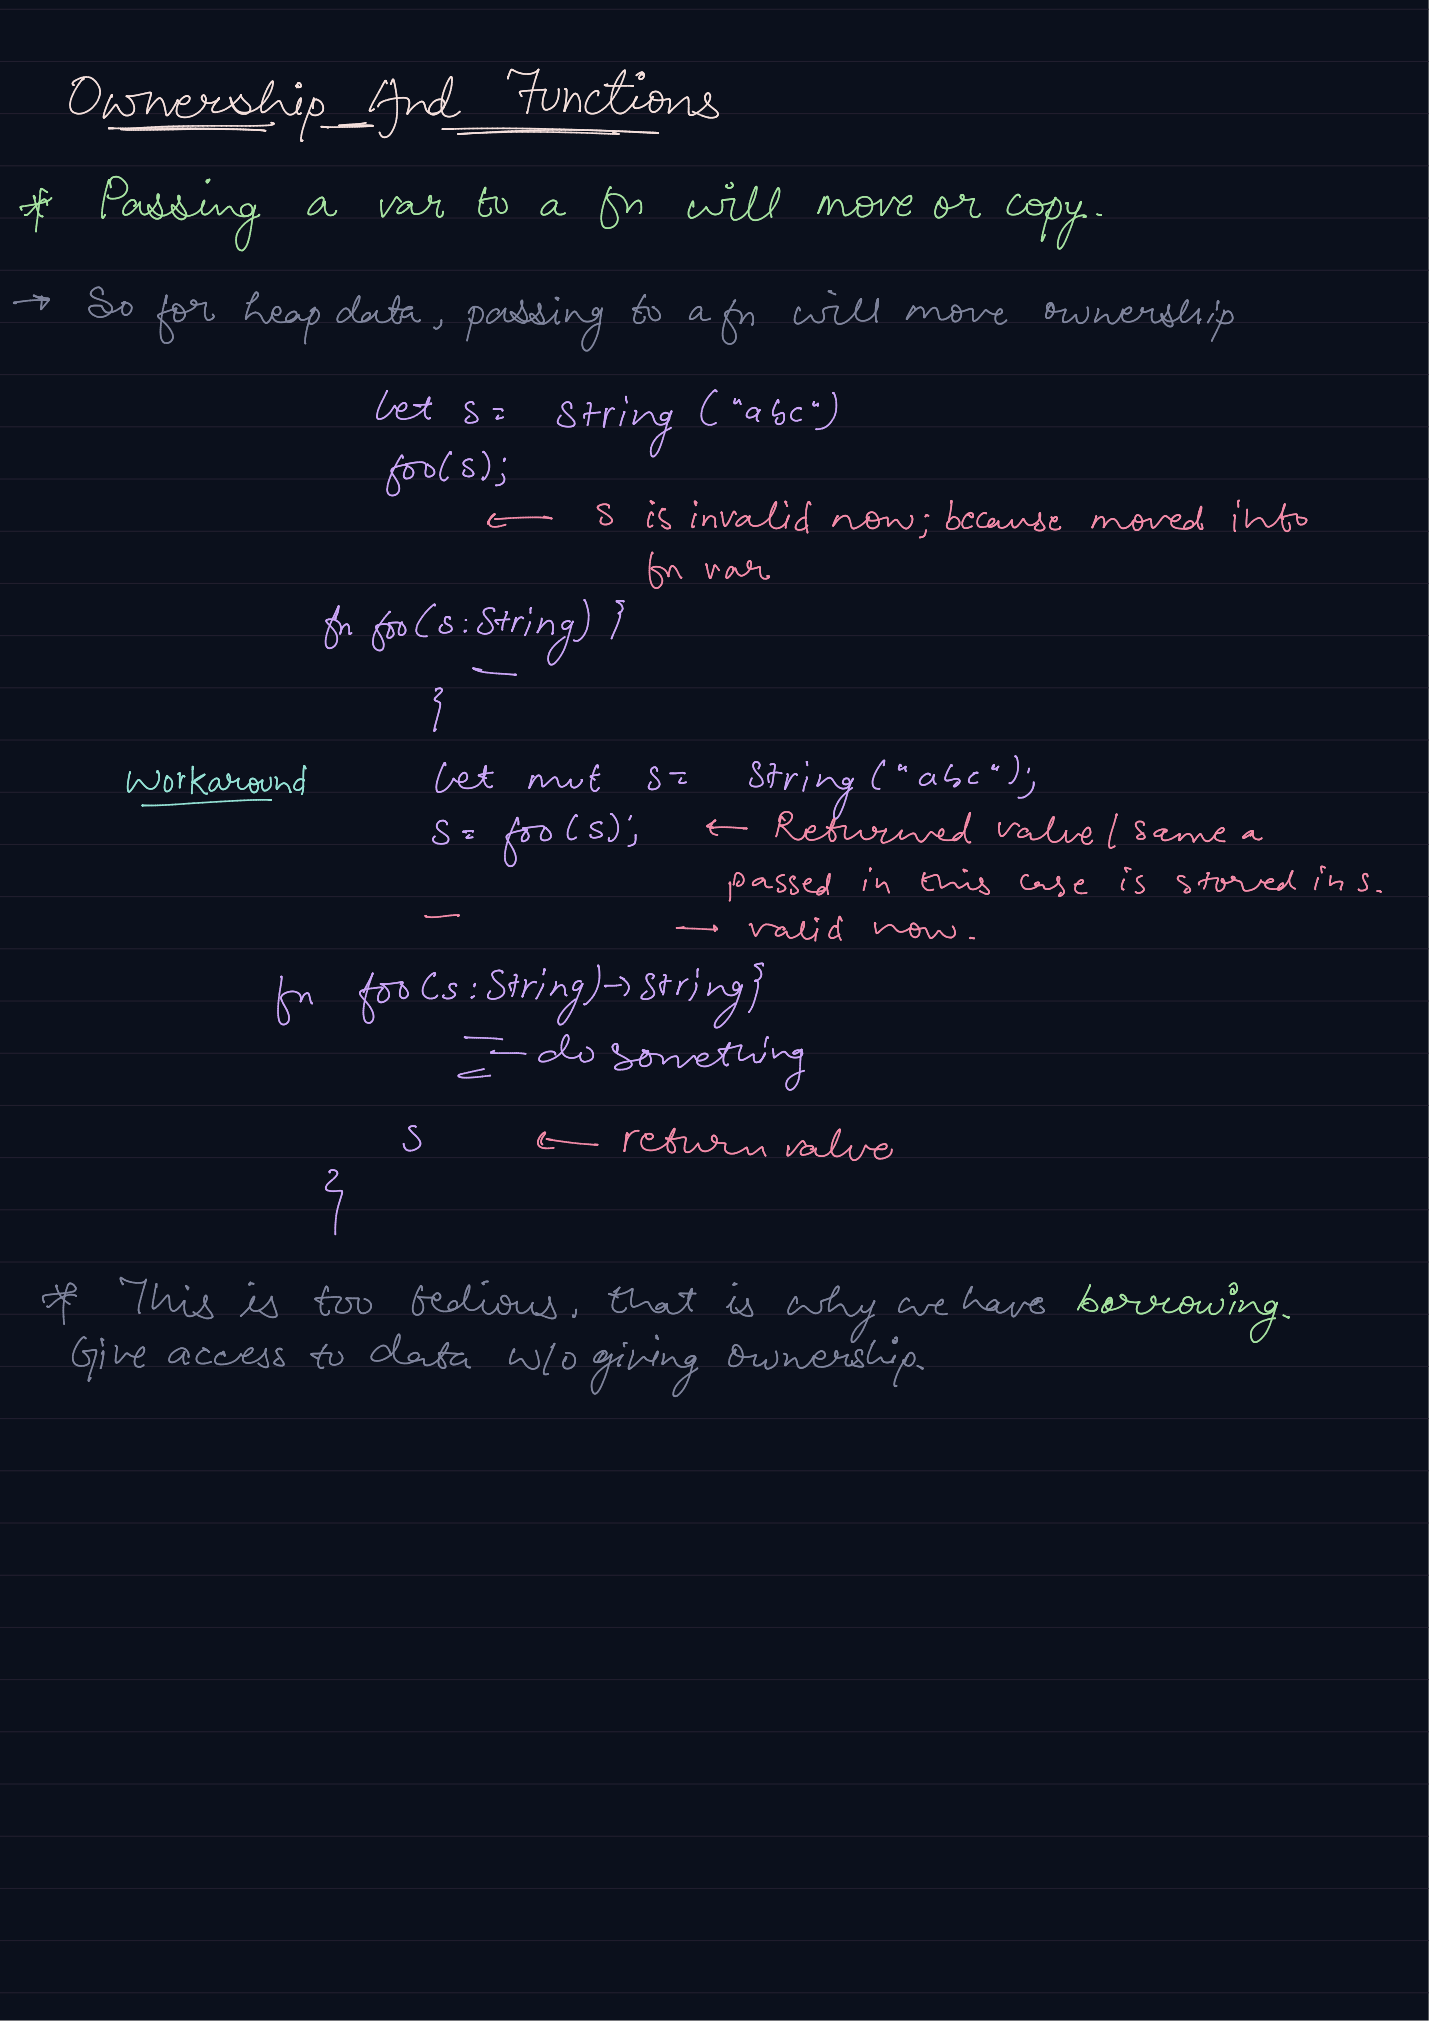 Ownership And Functions
* Passing a var to a fn will move or copy.
→ So for heap data, passing to a fn will move ownership
let s = String ("abc")
foo(s);
← s is invalid now; because moved into
fn var
fn foo(s:String) }
}
Workaround let mut s = String ("abc");
s = foo(s); ← Returned value / same a
passed in this case is stored in s.
→ valid now.
fn foo(s:String)→String}
do something
s ← return value
}
* This is too tedious, that is why we have borrowing.
Give access to data w/o giving ownership.